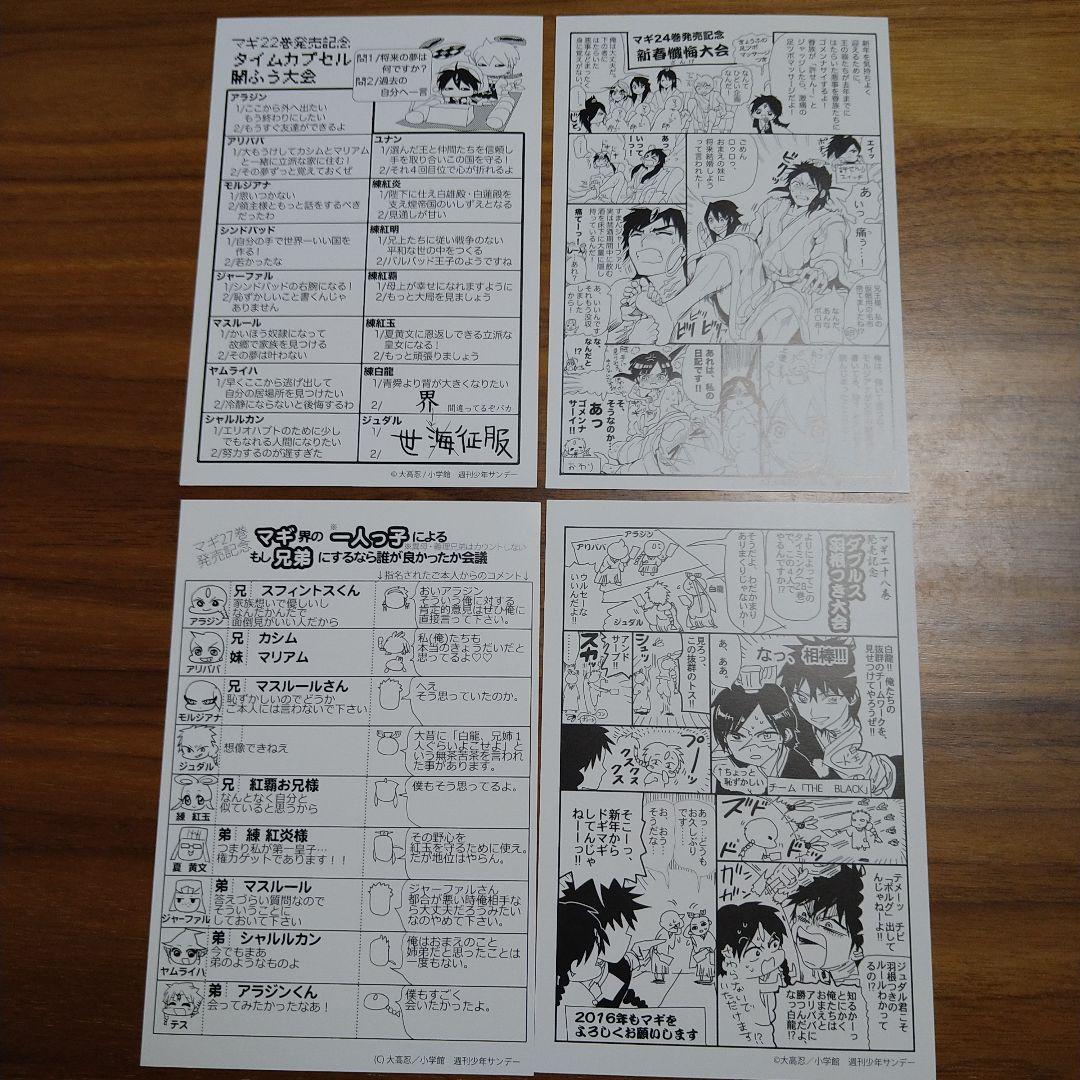 マギ22巻発売記念
タイムカプセル
開ふう大会
問1/将来の夢は
何ですか？
問2/過去の
自分へ一言
アラジン
1/ここから外へ出たい
もう終わりにしたい
2/もうすぐ友達ができるよ
アリババ
1/大もうけしてカシムとマリアム
と一緒に立派な家に住む！
2/その夢ずっと覚えておくぜ
モルジアナ
1/思いつかない
2/領主様ともっと話をするべき
だったわ
シンドバッド
1/自分の手で世界一いい国を
作る！
2/若かったな
ジャーファル
1/シンドバッドの右腕になる！
2/恥ずかしいこと書くんじゃ
ありません
マスルール
1/かいほう奴隷になって
故郷で家族を見つける
2/その夢は叶わない
ヤムライハ
1/早くここから逃げ出して
自分の居場所を見つけたい
2/冷静にならないと後悔するわ
シャルルカン
1/エリオハプトのために少し
でもなれる人間になりたい
2/努力するのが遅すぎた
ユナン
1/選んだ王と仲間たちを信頼し
手を取り合いこの国を守る！
2/それ4回目位で心が折れるよ
練紅炎
1/陛下に仕え白雄殿・白蓮殿を
支え煌帝国のいしずえとなる
2/見通しが甘い
練紅明
1/兄上たちに従い戦争のない
平和な世の中をつくる
2/バルバッド王子のようですね
練紅覇
1/母上が幸せになれますように
2/もっと大局を見ましょう
練紅玉
1/夏黄文に恩返しできる立派な
皇女になる！
2/もっと頑張りましょう
練白龍
1/青舜より背が大きくなりたい
2/
界 間違ってるぞバカ
ジュダル
1/
2/ 世海征服
©大高忍/小学館 週刊少年サンデー
マギ24巻発売記念
新春懺悔大会
きょうふの
足ツボ
マッサージ
新年を気持ちよく
迎えるために、
王の器たちが去年までに
はたらいた悪事を眷族たちに
ゴメンナサイするよ！
眷族が「許せん！」と
ジャッジしたら、激痛の
足ツボマッサージだよ！
なんて
ひどい企画
だ…
俺は大丈夫だ。
下の者に
はたらいた
悪事などまったく
身に覚えがない。
じとっ
エイッ
スイッチ
あっ
いって
ーっ
あいっ、痛っ
うーっ！
ビグッ
ごめん
ロゥロゥ、
おまえの妹に
将来結婚しよう
って言われた！
痛てーっ！
すまんジャーファル、
実は禁酒期間中に飲む
酒を床下に大量に隠し
持っているんだ！
あれ？
ビリビリッ
あ、いいんですよ。
それもう没収
しました
から！
なんだと
!?
兄王様、私の
仮眠用の毛布
捨てましたね!?
あんな
ボロ布
あれは、私の
日記です!!
そ、
そうなのか…
あっ
ゴメンナ
サーイ！
おわり
マギ27巻
発売記念
マギ界の※一人っ子による
※異母・義理兄弟はカウントしない
もし兄弟にするなら誰が良かったか会議
↓指名されたご本人からのコメント↓
アラジン
兄 スフィントスくん
家族想いで優しいし
なんだかんだで
面倒見がいい人だから
おいアラジン
そういう俺に対する
肯定的意見はぜひ俺に
直接言って下さい。
アリババ
兄 カシム
妹 マリアム
私(俺)たちも
本当のきょうだいだと
思ってるよ♡♡
モルジアナ
兄 マスルールさん
恥ずかしいのでどうか
ご本人には言わないで下さい
へぇ
そう思っていたのか。
ジュダル
想像できねえ
大昔に「白龍、兄姉1
人ぐらいよこせよ」と
いう無茶苦茶を言われ
た事があります。
練 紅玉
兄 紅覇お兄様
なんとなく自分と
似ていると思うから
僕もそう思ってるよ。
夏 黄文
弟 練 紅炎様
つまり私が第一皇子…
権力ゲットであります！！
その野心を
紅玉を守るために使え。
だが地位はやらん。
ジャーファル
弟 マスルール
答えづらい質問なので
そういうことに
しておいて下さい
ジャーファルさん
都合が悪い時俺相手な
ら大丈夫だろうみたい
なのやめて下さい。
ヤムライハ
弟 シャルルカン
今でもまあ
弟のようなものよ
俺はおまえのこと
姉弟だと思ったことは
一度もない。
テス
弟 アラジンくん
会ってみたかったなあ！
僕もすごく
会いたかったよ。
(C) 大高忍／小学館 週刊少年サンデー
マギ二十八巻
発売記念
ダブルス
羽根つき大会
よりによってこの
タイミング(28巻)
で、この4人で
やるんですか!?
そうだよ、わだかまり
ありまくりじゃないか
アラジン
アリババ
白龍
ウルセーな
いいんだよ！
ジュダル
白龍!! 俺たちの
抜群のチームワークを、
見せつけてやろうぜ!!
なっ、相棒!!!
↑ちょっと
恥ずかしい
チーム「THE BLACK」
見ろっ、
この抜群のトス!!
あ、ああ。
シュッ
アンド
サーブ!!
スカッ
プーッ
クスクス
クス
ズド
ドド
あっ…どうも
お久しぶり
です…
お、おう…
そうだな…
そこーっ
新年から
ドギマギ
してんじゃ
ねーーっ!!
テメーッ チビ
「ボルグ」出して
んじゃねーよ!!
ガンガン
ジュダル君こそ
羽根つきの
ルールわかって
るの!?
知るかーっ
とにかく
俺たちは
おまえと
アリババに
勝つんだよ
なっ白龍!?
2016年もマギを
よろしくお願いします
©大高忍／小学館 週刊少年サンデー